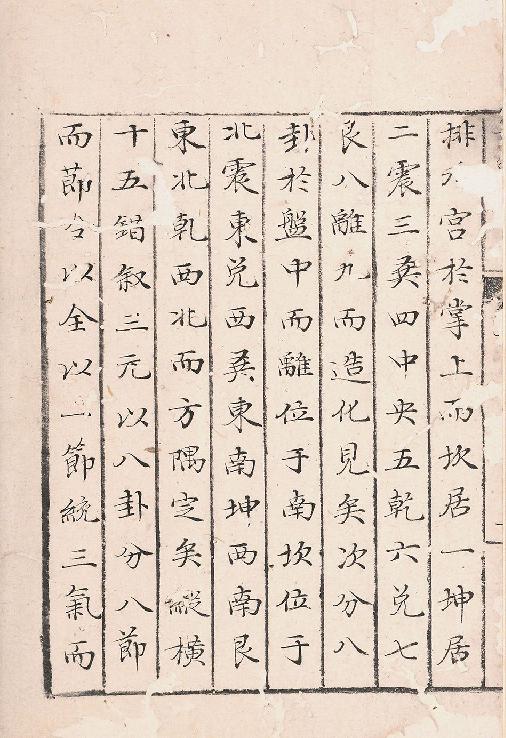 排九宮於掌上而坎居一坤居
二震三巽四中央五乾六兌七
艮八離九而造化見矣次分八
卦於盤中而離位于南坎位于
北震東兌西巽東南坤西南艮
東北乾西北而方隅定矣縱橫
十五錯叙三元以八卦分八節
而節令以全以一節統三氣而